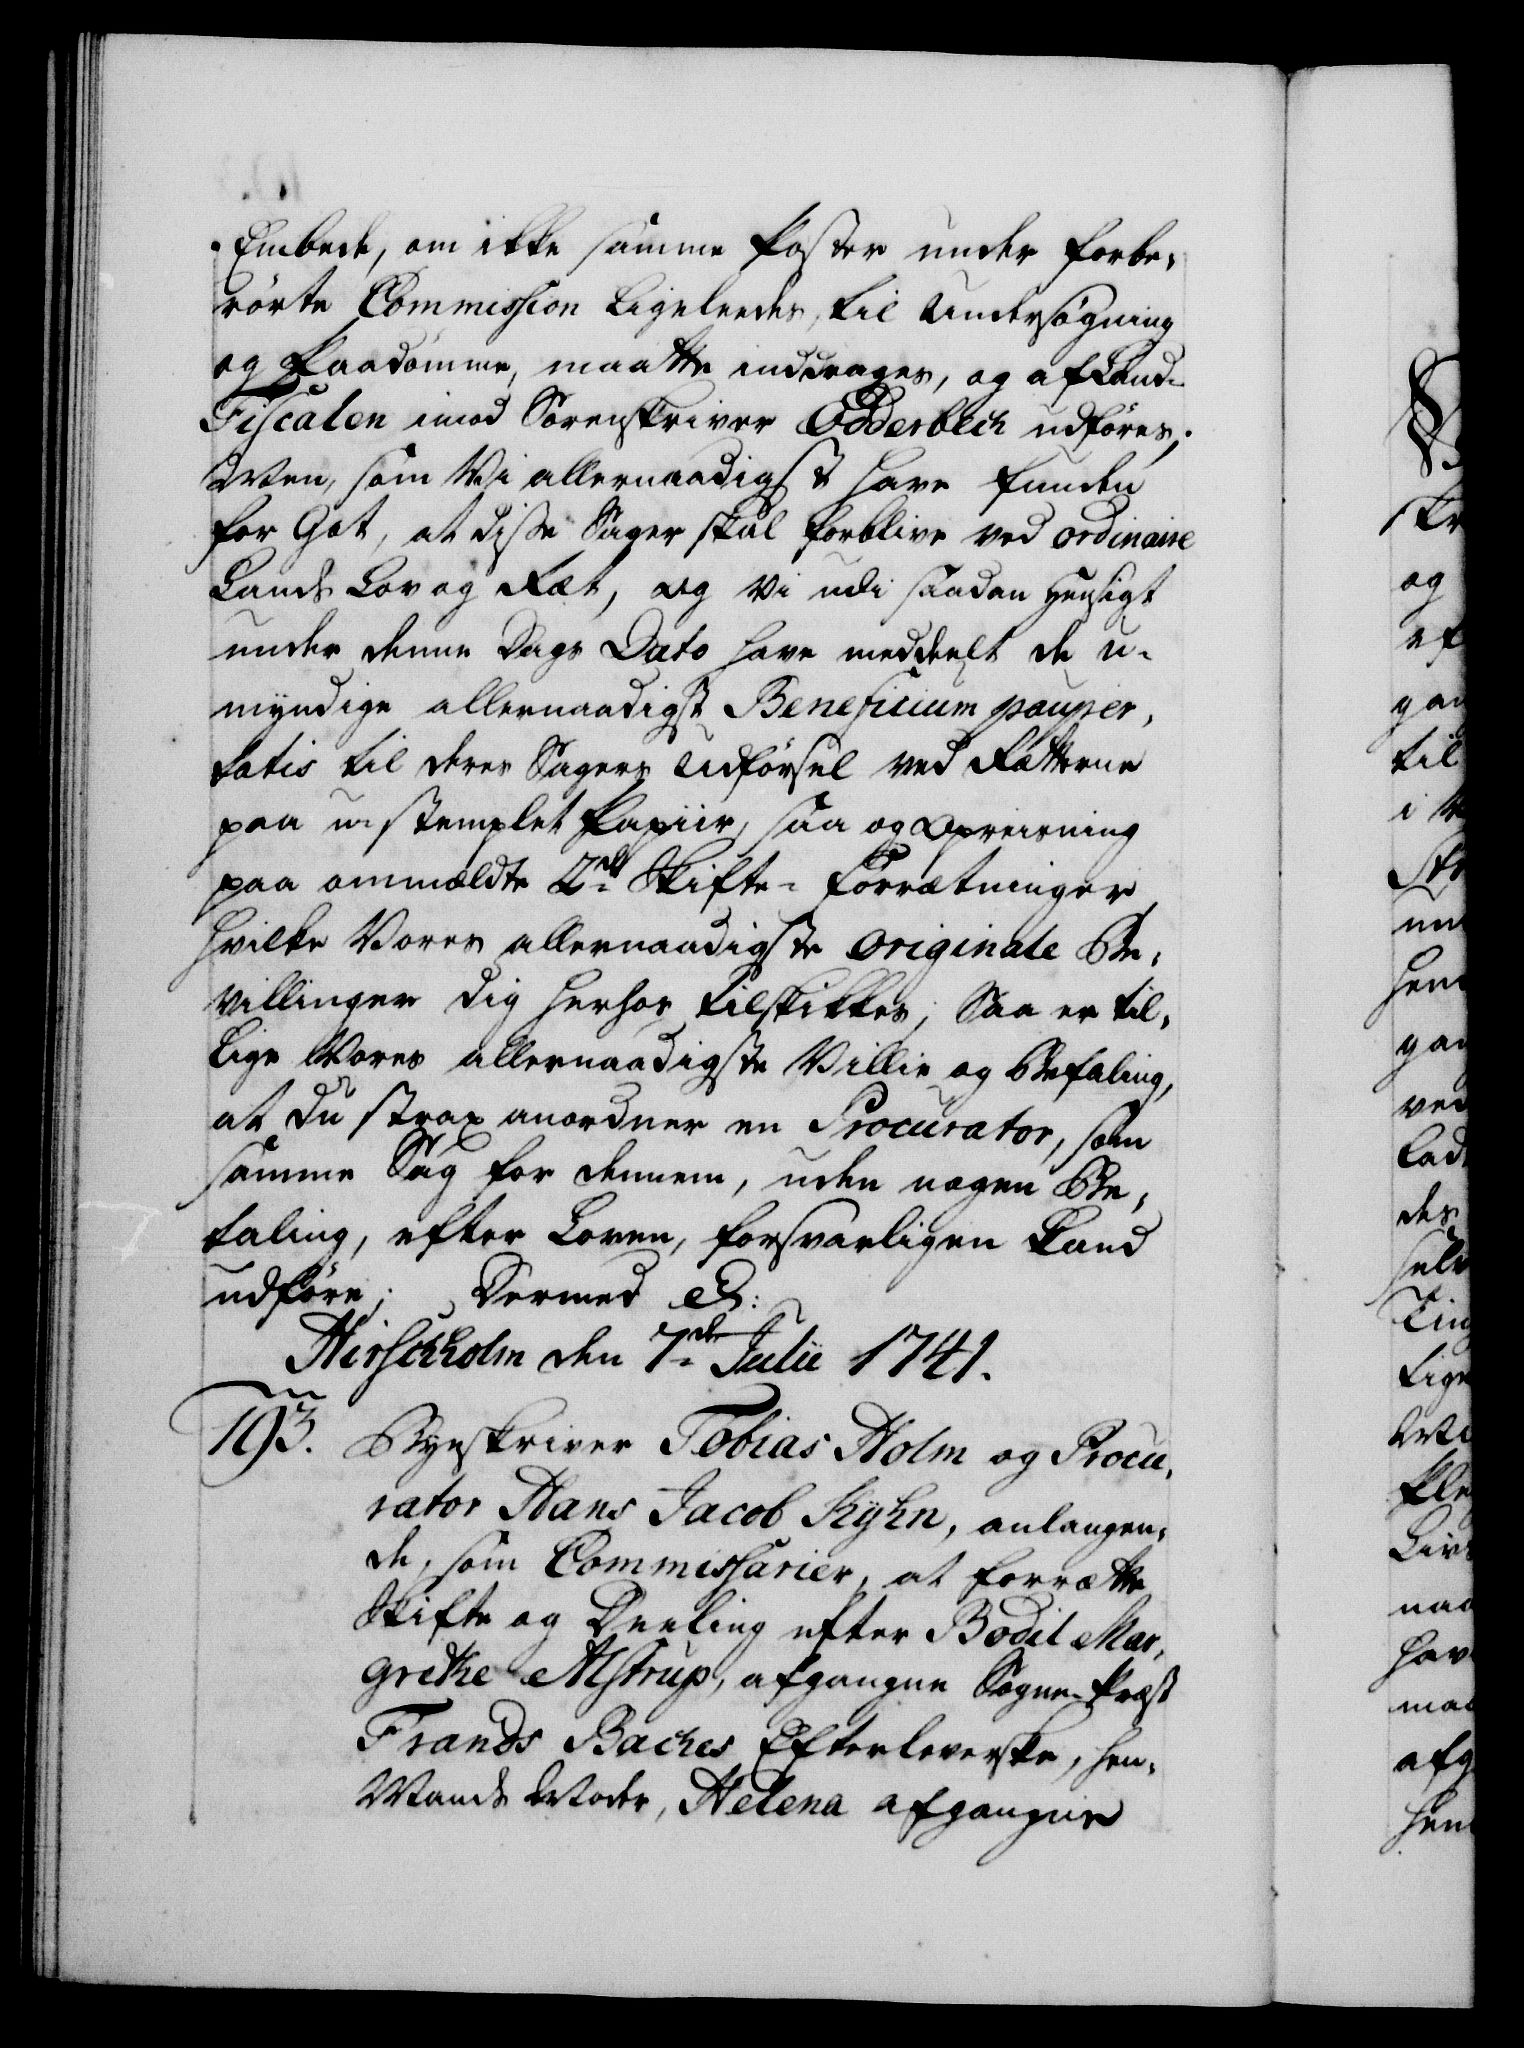 Embede, om ikke samme Poster under forbe-
rörte Commission ligeleedes, til Undersøgning
og Paadömme, maatte inddrages, og af Land-
Fiscalen imod Sorenskriver Edderbech udföres;
Men, som Vi allernaadigst have funden
for Got, at disse Sager skal forblive ved ordinaire
Lands Lov og Ræt, og Vi udi saadan Hensigt
under denne Dags Dato have meddeelt de u-
myndige allernaadigst Beneficium pauper-
tatis til deres Sagers Udförsel ved Rætterne
paa u-stemplet Papiir, saa og Opreisning
paa ommældte 2de Skifte-Forrætninger,
hvilke Vores allernaadigste originale Be-
villinger dig herhos tilskikkes; Saa er til-
lige Vores allernaadigste Villie og Befaling,
at du strax anordner en Procurator, som
samme Sag for dennem, uden nogen Be-
taling, efter Loven, forsvarligen kand
udföre; Dermed &:
Hirschholm den 7de Julii 1741.
193. Byeskriver Tobias Holm og Procu-
rator Hans Jacob Kyhn, anlangen-
de, som Commissarier, at forrætte
Skifte og Deeling efter Bodil Mar-
grethe Alstrup, afgangne Sogne-Præst
Frands Baches Efterleverske, hen-
Mands Moder, Helena afgangne
Skr
og
ef
gan
til
i
hen
gan
ved
lad
des
selv
Ting
lige
naa
hav
maa
afg
hen